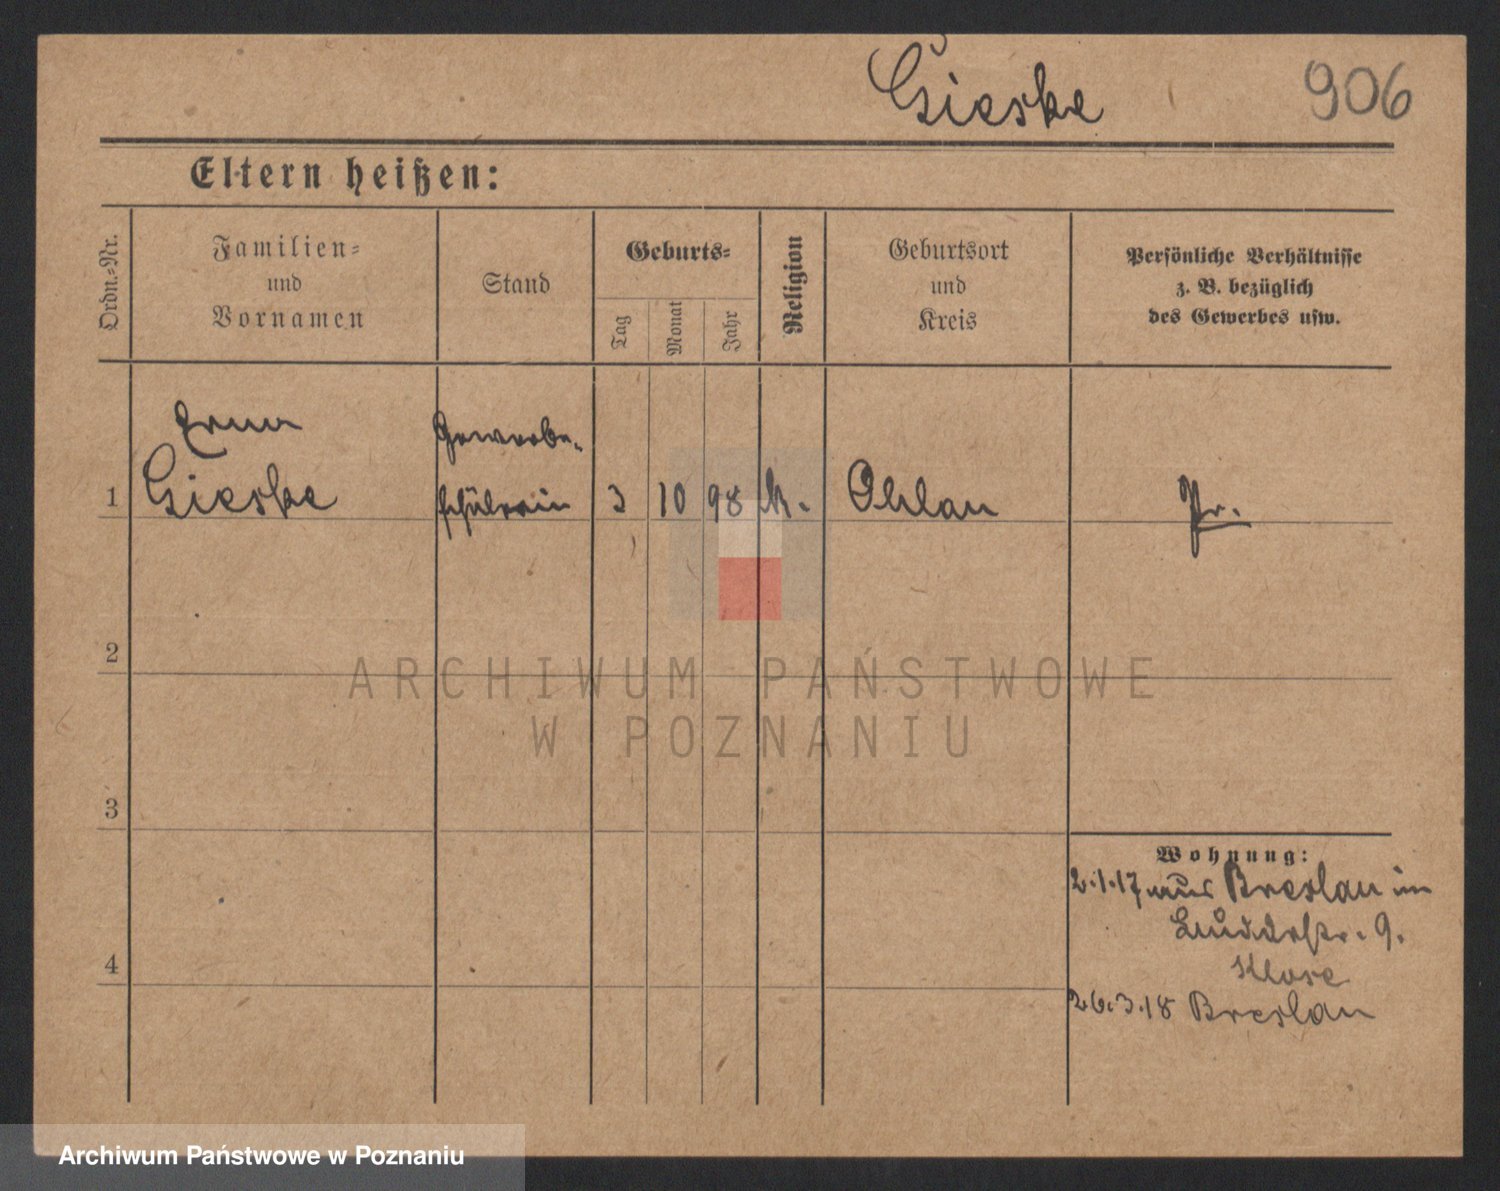 Gieske 906
Eltern heißen:
Ordn.=Nr.
Familien=
und
Vornamen
Stand
Geburts=
Tag
Monat
Jahr
Religion
Geburtsort
und
Kreis
Persönliche Verhältnisse
z. B. bezüglich
des Gewerbes usw.
Erna Gewerbe-
1 Gieske schülerin 3 10 98 k. Ohlau Pr.
2
3
4
Wohnung:
2.1.17 aus Breslau in
9.
Klose
26.3.18 Breslau
ARCHIWUM PAŃSTWOWE
W POZNANIU
Archiwum Państwowe w Poznaniu